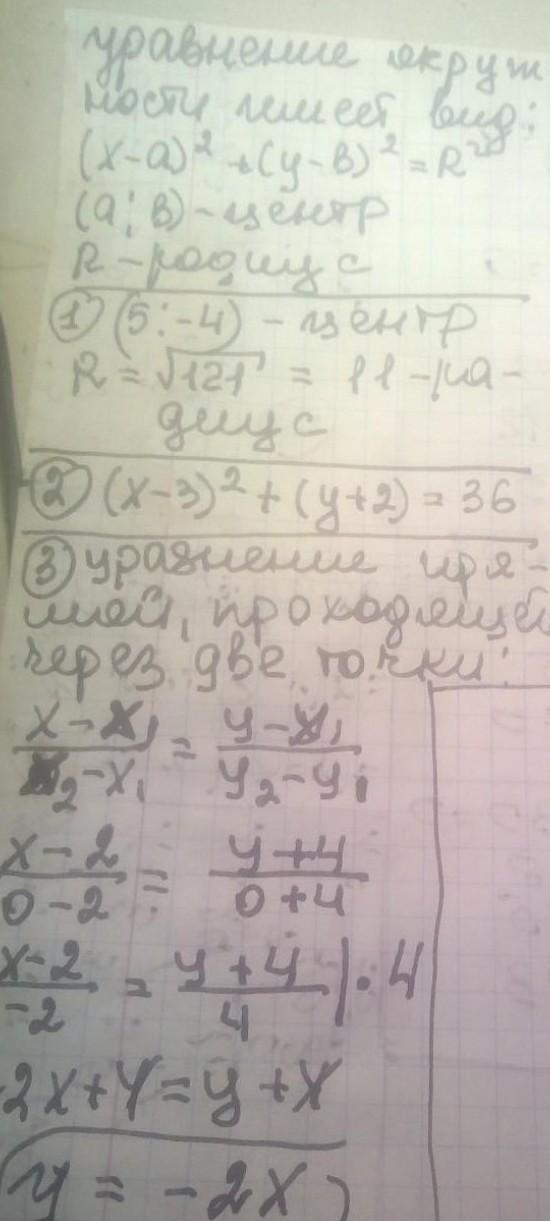 уравнение окруж
ности имеет вид:
(x-a)² + (y-b)² = R²
(a; b) - центр
R - радиус
① (5; -4) - центр
R = √121 = 11 - ра-
диус
② (x-3)² + (y+2) = 36
③ уравнение пря-
мой, проходящей
через две точки:
(x - x₁)/(x₂ - x₁) = (y - y₁)/(y₂ - y₁)
(x - 2)/(0 - 2) = (y + 4)/(0 + 4)
(x - 2)/(-2) = (y + 4)/4 | · 4
-2x + 4 = y + 4
y = -2x